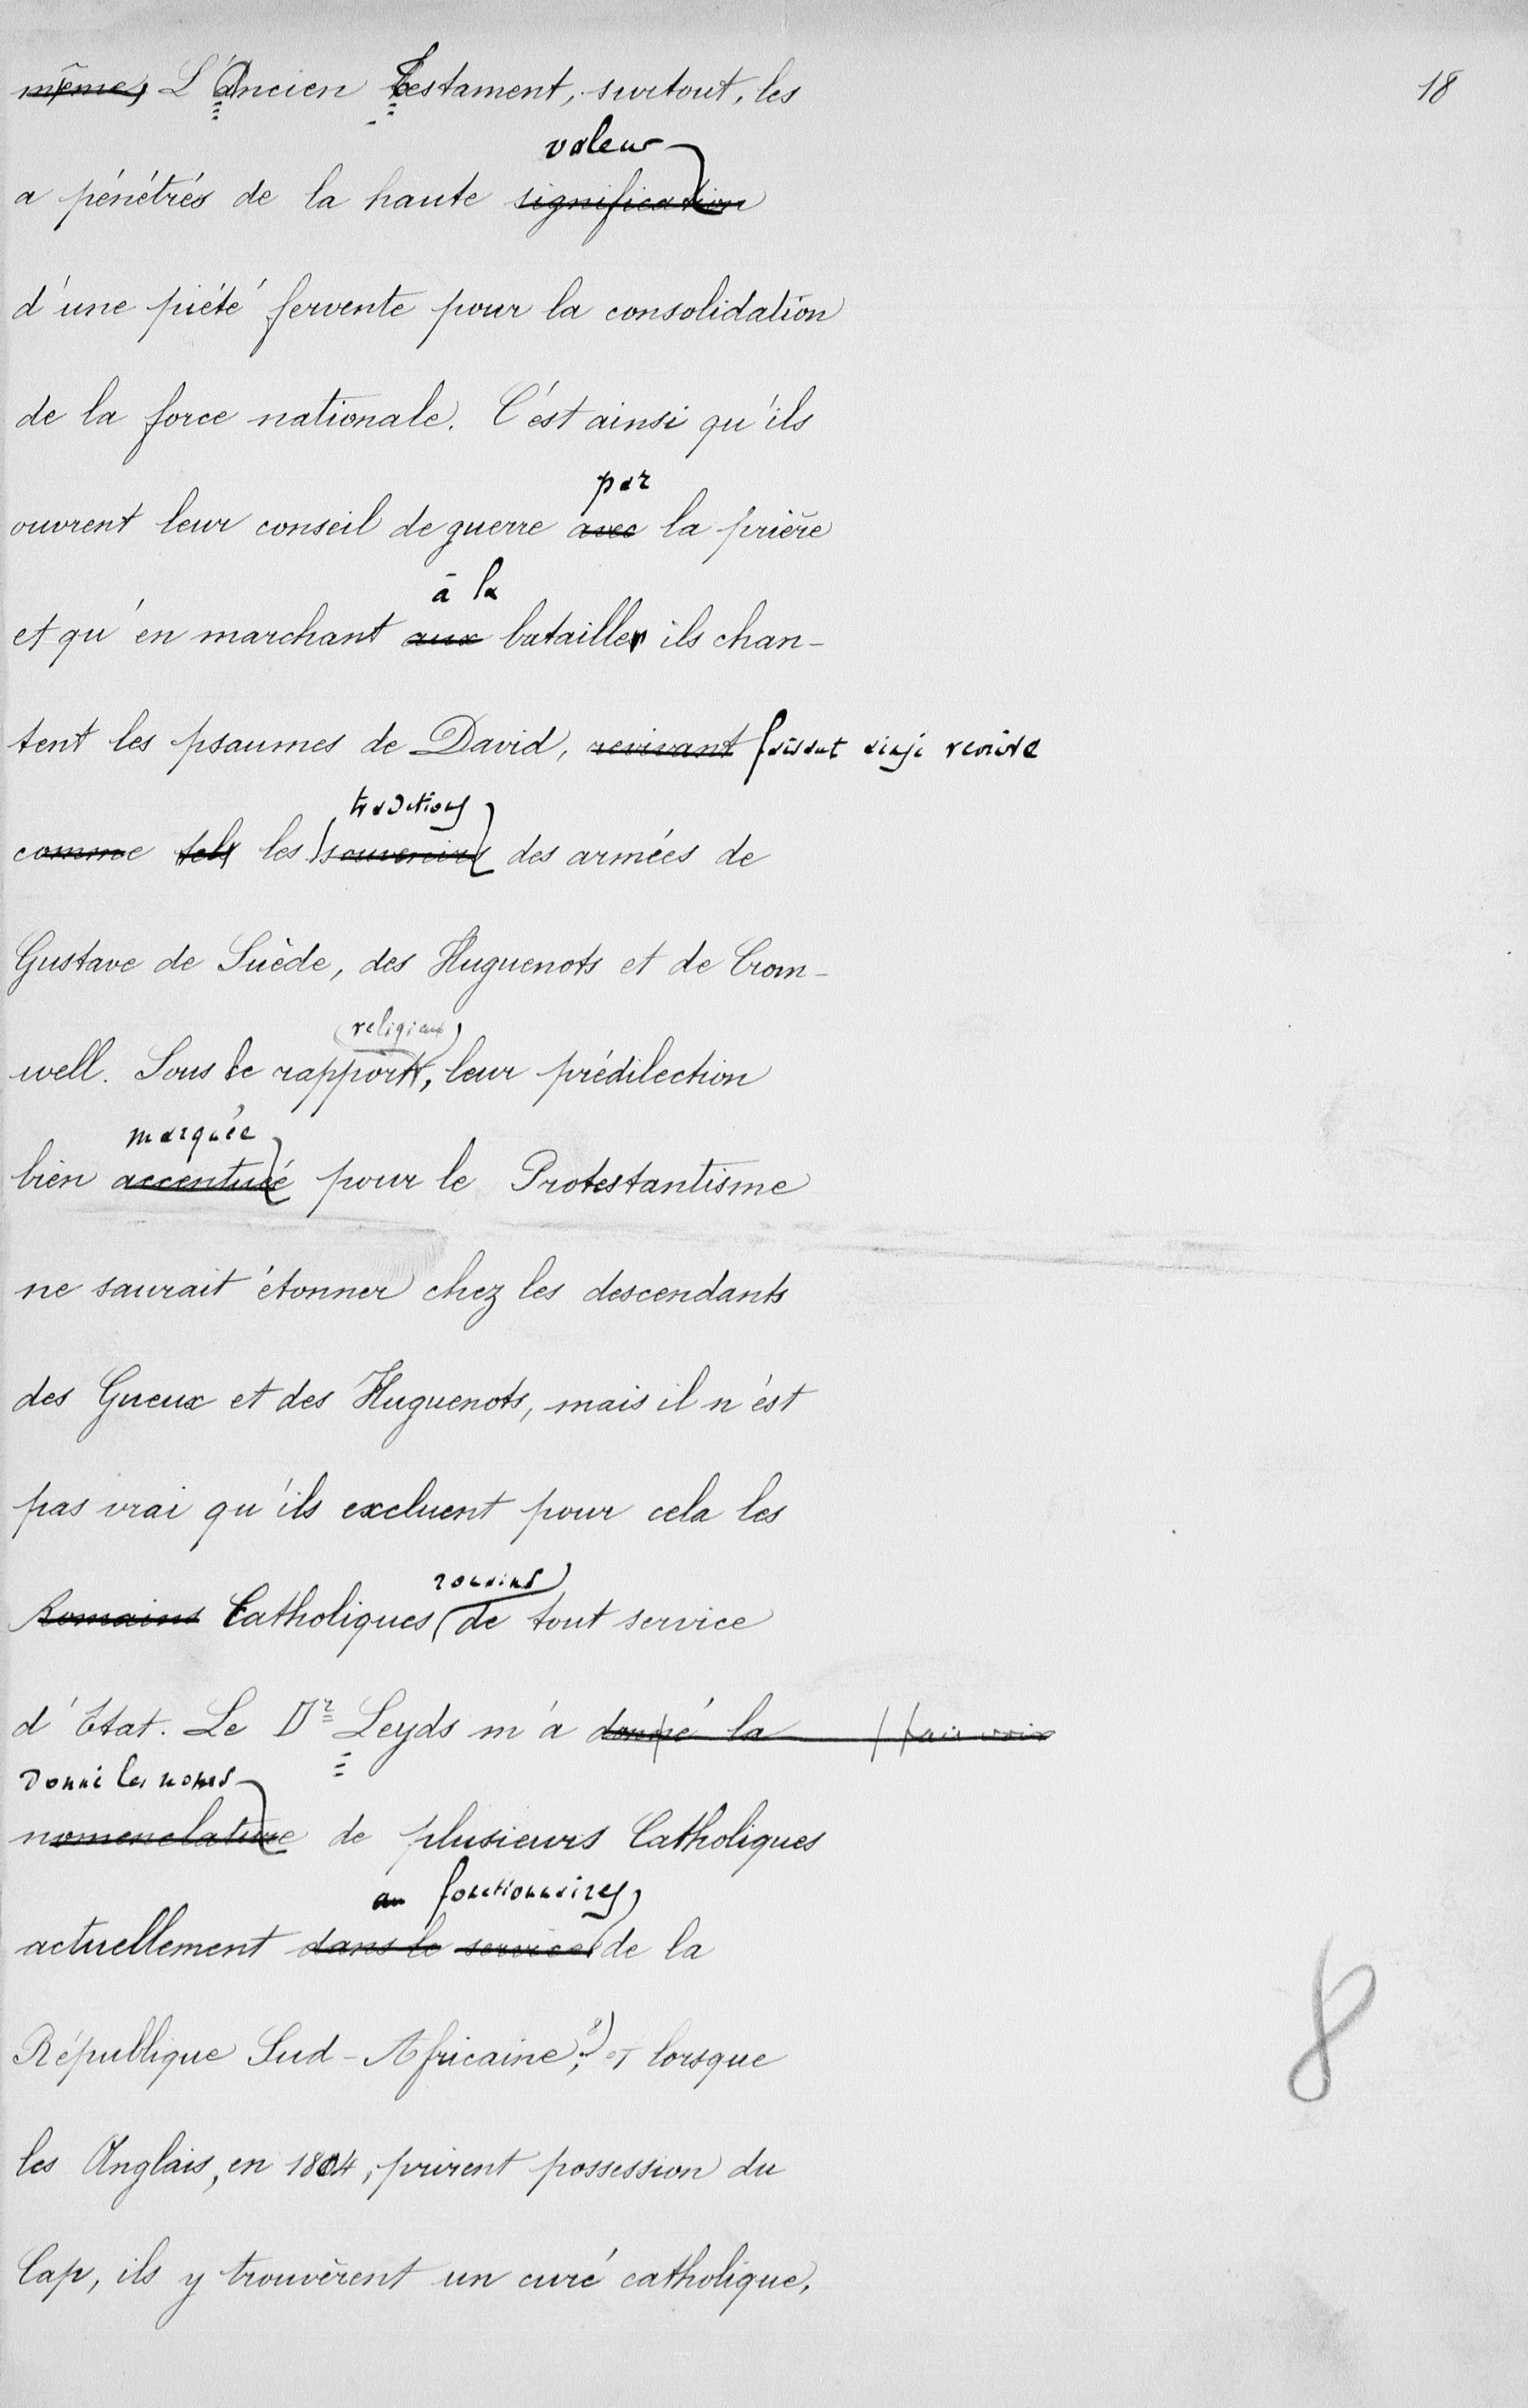 même, L'Ancien Testament, surtout, les
18
valeur
a pénétrés de la haute signification
d'une piété fervente pour la consolidation
de la force nationale. C'est ainsi qu'ils
par
ouvrent leur conseil de guerre avec la prière
à la
et qu'en marchant aux batailles ils chan-
tent les psaumes de David, revivant faisant ainsi revivre
traditions
comme tels les souvenirs des armées de
Gustave de Suède, des Huguenots et de Crom-
religieux
well. Sous le rapport, leur prédilection
marquée
bien accentuée pour le Protestantisme
ne saurait étonner chez les descendants
des Gueux et des Huguenots, mais il n'est
pas vrai qu'ils excluent pour cela les
romains
Romains Catholiques de tout service
d'Etat. Le Dr Leyds m'a donné la
Donné les noms
nomenclature de plusieurs Catholiques
fonctionnaires
actuellement dans le service de la
République Sud-Africaine; et lorsque
8
les Anglais, en 1804, prirent possession du
Cap, ils y trouvèrent un curé catholique,